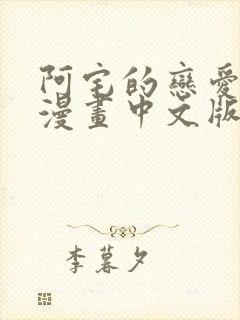 阿宅的戀愛
漫畫中文版
李暮夕